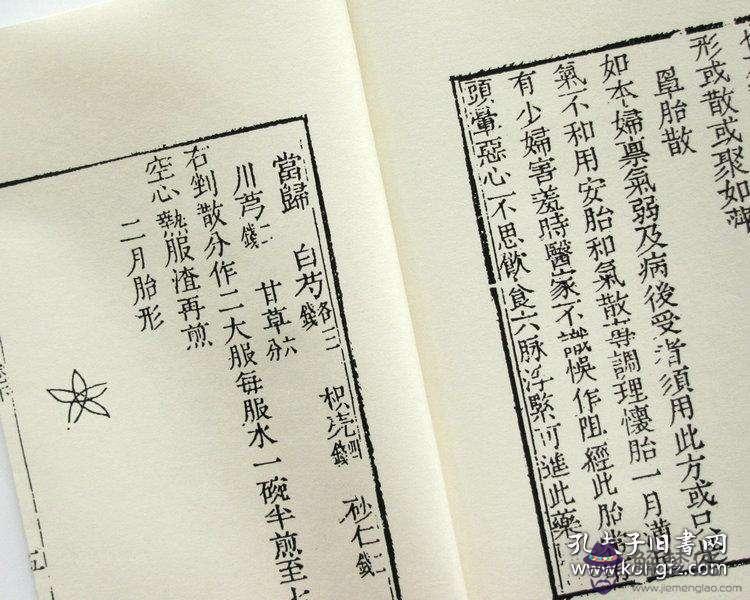 形或散或聚如萍
罩胎散
如本婦禀氣弱及病後受胎須用此方或只
氣不和用安胎和氣散等調理懷胎一月
有少婦害羞時醫家不識悞作阻經此胎
頭暈惡心不思飲食六脉浮緊可進此藥
當歸 白芍各三錢 枳壳四錢 砂仁二錢
川芎二錢 甘草六分
右剉散分作二大服每服水一碗半煎至
空心熱服渣再煎
二月胎形
五
孔夫子旧书网
www.jiemenglao.com